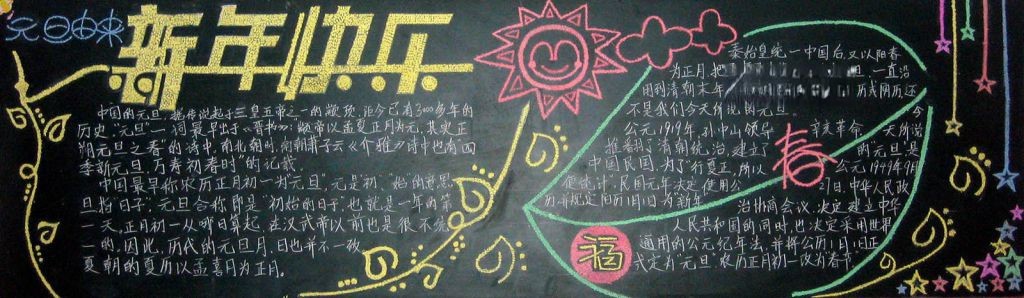 元旦由来
新年快乐
中国的元旦,据传说起于三皇五帝之一的颛顼,距今已有3000多年的
历史。"元旦"一词最早出于《晋书》:"颛帝以孟夏正月为元,其实正
朔元旦之春"的诗中。南北朝时,南朝萧子云《介雅》诗中也有"四
季新元旦,万寿初春时"的记载。
中国最早称农历正月初一为"元旦",元是"初"、"始"的意思
旦指"日子",元旦合称即是"初始的日子",也就是一年的第
一天。正月初一从哪日算起,在汉武帝以前也是很不统
一的。因此,历代的元旦月、日也并不一致
夏朝的夏历以孟喜月为正月。
秦始皇统一中国后,又以阳春
为正月,把
旦,一直沿
用到清朝末年
历或阴历,还
不是我们今天所说的元旦。
公元1919年,孙中山领导
辛亥革命
今天所说
推翻了清朝统治,建立了
的"元旦"是
中国民国。为了"行夏正,所以
公元1949年9月
便统计,民国元年决定使用公
27日,中华人民政
历并规定阳历1月1日为"新年"
治协商会议,决定建立中华
人民共和国的同时,也决定采用世界
通用的公元纪年法,并将公历1月1日正
式定为"元旦",农历正月初一改为春节。
春
福